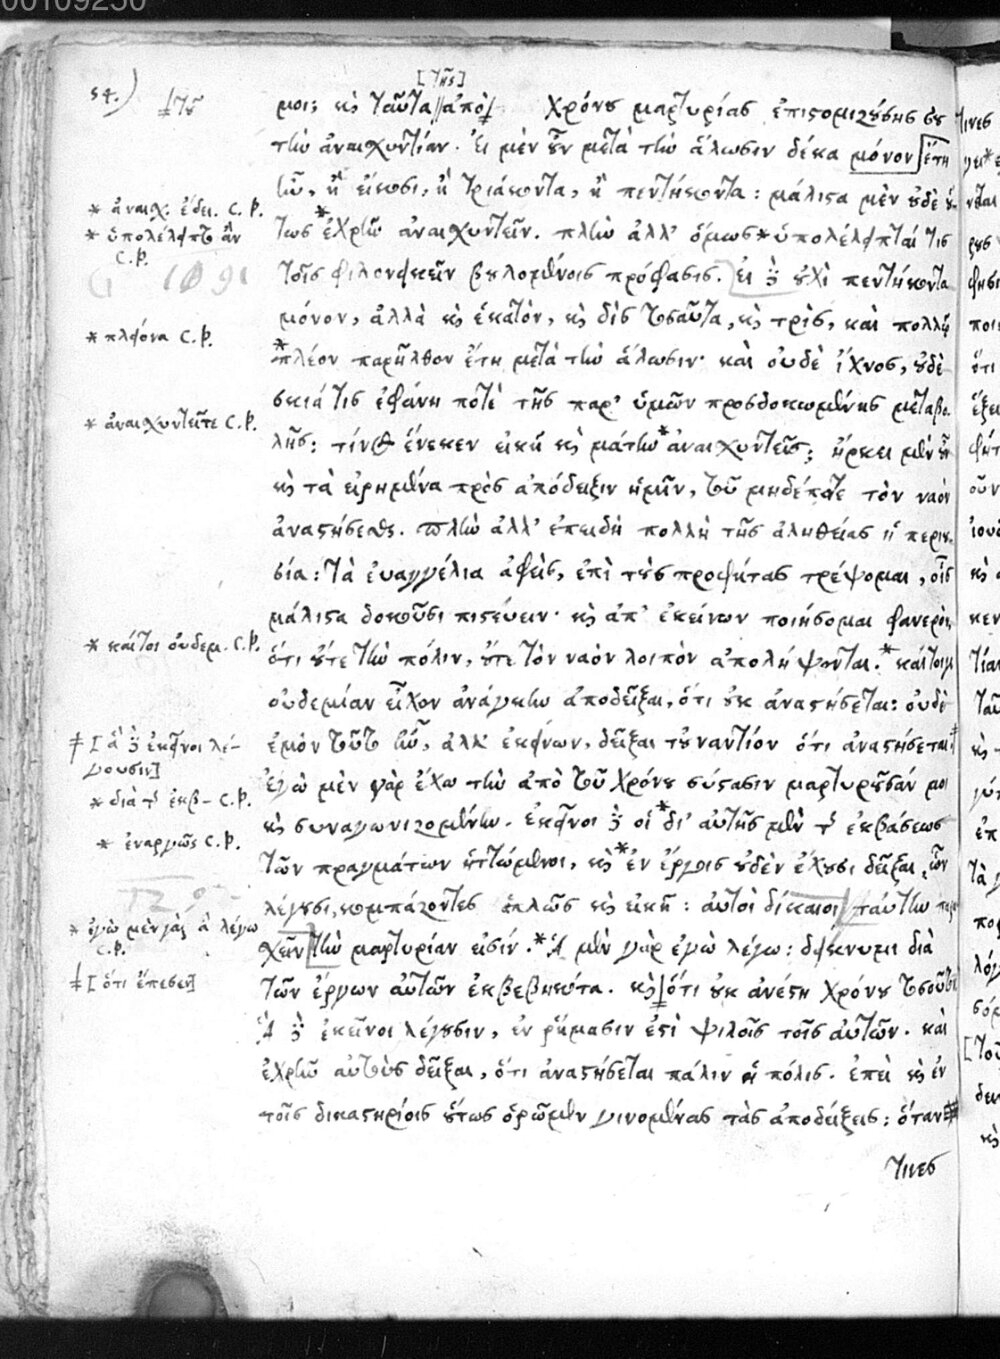 00109250
54.)
τοῦ
[τῆς]
μοι; κỳ ταῦτα ἀπὸ χρόνου μαρτυρίας ἐπιστομιζούσης σου
τὴν ἀναισχυντίαν. Εἰ μὲν οὖν μετὰ τὴν ἅλωσιν δέκα μόνον ἔτη
ἦν, ἢ εἴκοσι, ἢ τριάκοντα, ἢ πεντήκοντα: μάλιστα μὲν οὐδὲ οὕ-
* ἀναισχ. ἔδει. C. P.
τως *ἐχρῆν ἀναισχυντεῖν. πλὴν ἀλλ' ὅμως *ὑπολέλειπταί τις
* ὑπολέλειπτο ἂν
C. P.
τοῖς φιλονεικεῖν βουλομένοις πρόφασις. εἰ δὲ οὐχὶ πεντήκοντα
μόνον, ἀλλὰ κỳ ἑκατὸν, κỳ δὶς τοσαῦτα, κỳ τρὶς, καὶ πολλῷ
* πλείονα C. P.
*πλέον παρῆλθον ἔτη μετὰ τὴν ἅλωσιν· καὶ οὐδὲ ἴχνος, οὐδὲ
σκιά τις ἐφάνη ποτὲ τῆς παρ' ὑμῶν προσδοκωμένης μεταβο-
* ἀναισχυντεῖτε C. P.
λῆς: τίνος ἕνεκεν εἰκῆ κỳ μάτην *ἀναισχυντεῖς; ἤρκει μὲν οὖν
κỳ τὰ εἰρημένα πρὸς ἀπόδειξιν ἡμῖν, τοῦ μηδέποτε τὸν ναὸν
ἀναστήσεσθαι. πλὴν ἀλλ' ἐπειδὴ πολλὴ τῆς ἀληθείας ἡ περιου-
σία: τὰ εὐαγγέλια ἀφεὶς, ἐπὶ τοὺς προφήτας τρέψομαι, οἷς
μάλιστα δοκοῦσι πιστεύειν· κỳ ἀπ' ἐκείνων ποιήσομαι φανερὸν,
* καίτοι οὐδεμ. C. P.
ὅτι οὔτε τὴν πόλιν, οὔτε τὸν ναὸν λοιπὸν ἀπολήψονται. *καίτοιγε
οὐδεμίαν εἶχον ἀνάγκην ἀποδεῖξαι, ὅτι οὐκ ἀναστήσεται: οὐδὲ
‡ [ἃ δὲ ἐκεῖνοι λέ-
γουσιν]
ἐμὸν τοῦτο ἦν, ἀλλ' ἐκείνων, δεῖξαι τοὐναντίον ὅτι ἀναστήσεται‡
ἐγὼ μὲν γὰρ ἔχω τὴν ἀπὸ τοῦ χρόνου σύστασιν μαρτυροῦσάν μοι
* διὰ τ ἐκβ- C. P.
κỳ συναγωνιζομένην. ἐκεῖνοι δὲ οἱ *δι' αὐτῆς μὲν τ ἐκβάσεως
* ἐναργῶς C. P.
τῶν πραγμάτων ἡττώμενοι, κỳ *ἐν ἔργοις οὐδὲν ἔχουσι δεῖξαι, ὧν
λέγουσι, κομπάζοντες ἁπλῶς κỳ εἰκῆ: αὐτοὶ δίκαιοι ταύτην παρα-
* ἐγὼ μὲν γὰρ ἃ λέγω
C. P.
χεῖν τὴν μαρτυρίαν εἰσίν. *Ἃ μὲν γὰρ ἐγὼ λέγω: δείκνυμι διὰ
‡ [ὅτι ἔπεσεν]
τῶν ἔργων αὐτῶν ἐκβεβηκότα. κỳ ὅτι οὐκ ἀνέστη χρόνου τοσούτου
Ἃ δὲ ἐκεῖνοι λέγουσιν, ἐν ῥήμασιν ἐστὶ ψιλοῖς τοῖς αὐτῶν. καὶ
ἐχρῆν αὐτοὺς δεῖξαι, ὅτι ἀναστήσεται πάλιν ἡ πόλις. ἐπεὶ κỳ ἐν
τοῖς δικαστηρίοις οὕτως ὁρῶμεν γινομένας τὰς ἀποδείξεις: ὅταν
τινες